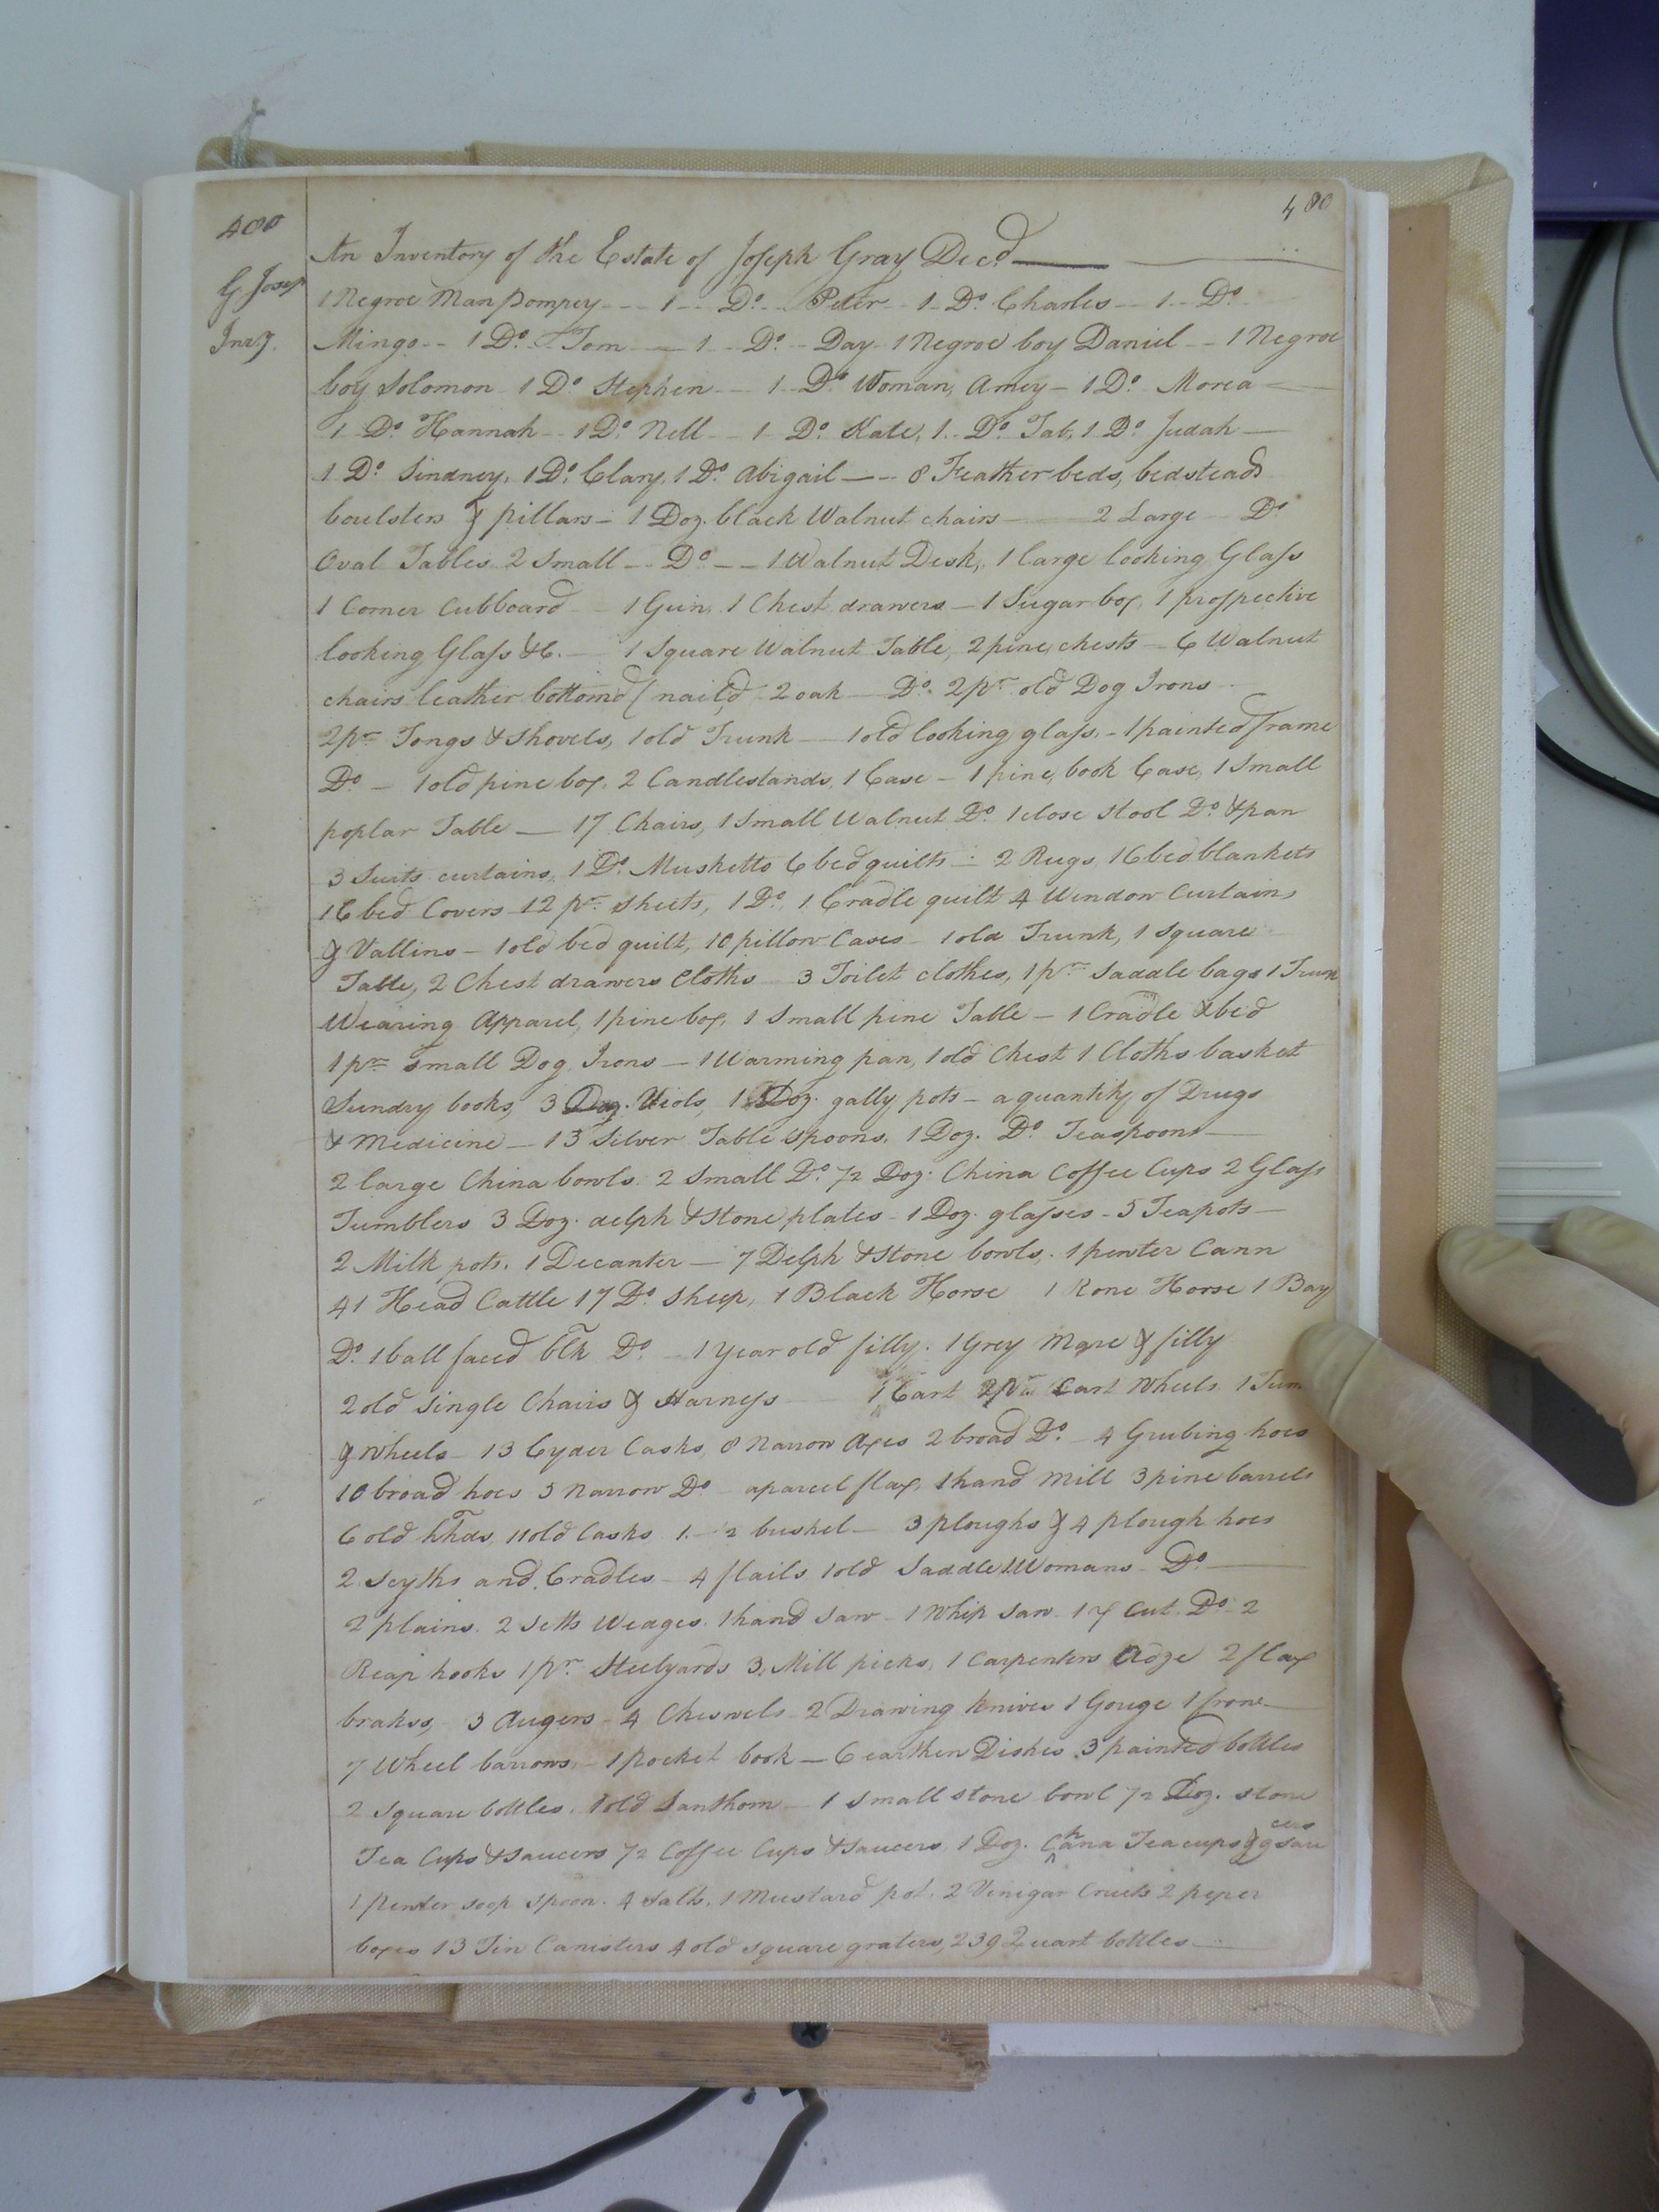 480
400
An Inventory of the Estate of Joseph Gray Decd
G Josep
1 Negroe Man Pompey - - - 1 - - Do. - - Peter - - 1 - Do Charles - - 1 - - Do
Invy.
Mingo - - 1 Do. - Tom — 1 - - Do - - Day - 1 Negroe boy Daniel - - 1 Negroe
boy Solomon - 1 Do Stephen - - 1 - Do Woman, Amey - 1 Do. Morea —
1 - Do. Hannah - - 1 Do. Nell - - 1 - Do Kate, 1 - Do. Tab, 1 Do. Judah —
1 Do. Sindney, 1 Do. Clary, 1 Do. Abigail — - - 8 Feather beds, bedsteads
boulsters & pillars - 1 Doz. black Walnut chairs — 2 Large Do
Oval Tables 2 Small - - Do - - 1 Walnut Desk, 1 large looking Glass
1 Corner Cubboard - 1 Gun, 1 Chest drawers - 1 Sugar box, 1 prospective
looking Glass &C. — 1 Square Walnut Table, 2 pine chests - 6 Walnut
chairs leather bottomd ( naild - 2 oak — Do. 2 pr old Dog Irons
2 pr Tongs & Shovels, 1 old Trunk — 1 old looking glass - 1 painted frame
Do - 1 old pine box, 2 Candlestands, 1 Case - 1 pine, book Case, 1 Small
poplar Table — 17 Chairs, 1 Small Walnut Do. 1 close stool Do. & pan
3 Suits curtains, 1 Do. Musketto 6 bed quilts - 2 Rugs 16 bed blankets
16 bed Covers 12 pr sheets, 1 Do. 1 Cradle quilt 4 Window Curtains
& Vallins - 1 old bed quilt, 10 pillow Cases - 1 old Trunk, 1 square
Table, 2 Chest drawers Cloths 3 Toilet clothes, 1 pr Saddle bags 1 Trunk
Wearing Apparel, 1 pine box, 1 Small pine Table - 1 Cradle & bed
1 pr small Dog Irons - 1 Warming pan, 1 old Chest 1 Cloths basket
Sundry books, 3 Doz. Viols, 1 Doz. gally pots - a quantity of Drugs
& Medicine - 13 Silver Table spoons, 1 Doz. Do. Teaspoons —
2 large China bowls. 2 Small Do. ½ Doz. China Coffee Cups 2 Glass
Tumblers 3 Doz. delph & Stone plates - 1 Doz. glasses - 5 Teapots —
2 Milk pots. 1 Decanter — 7 Delph & Stone bowls, 1 pewter Cann
41 Head Cattle 17 Do. Sheep, 1 Black Horse 1 Rone Horse 1 Bay
Do. 1 ball faced blk Do. - 1 Year old filly. 1 Grey Mare & filly
2 old Single Chairs & Harness — 1 Cart 2 pr Cart Wheels 1 Tum
& Wheels - 13 Cyder Casks, 8 Narrow Axes 2 broad Do. - 4 Grubing hoes
10 broad hoes 3 Narrow Do - a parcel flax, 1 hand Mill 3 pine barrels
6 old hhds, 11 old Casks 1 - ½ bushel - 3 ploughs & 4 plough hoes
2 Scyths and Cradles - 4 flails 1 old Saddle 1 Womans Do —
2 plains. 2 Setts Wedges. 1 hand Saw - 1 Whip Saw 1 X Cut Do - 2
Reap hooks 1 pr Steelyards 3 Mill picks, 1 Carpenters Adze 2 flax
brakes, 3 Augers - 4 Cheswels - 2 Drawing Knives 1 Gouge 1 frone
7 Wheel barrows, - 1 pocket book - 6 earthen Dishes 3 painted bottles
2 square bottles, 1 old Lanthorn - 1 small stone bowl ½ Doz. stone
Tea Cups & saucers ½ Coffee Cups & saucers, 1 Doz. Chana Tea cups & 9 saucers
1 pewter soop spoon. 4 salts, 1 Mustard pot. 2 Vinigar Cruits 2 peper
boxes 13 Tin Canisters 4 old square graters, 239 Quart bottles —